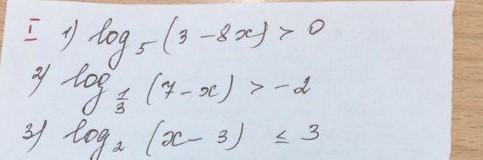 I 1) log₅ (3 - 8x) > 0
2) log_{1/3} (7 - x) > -2
3) log₂ (x - 3) ≤ 3